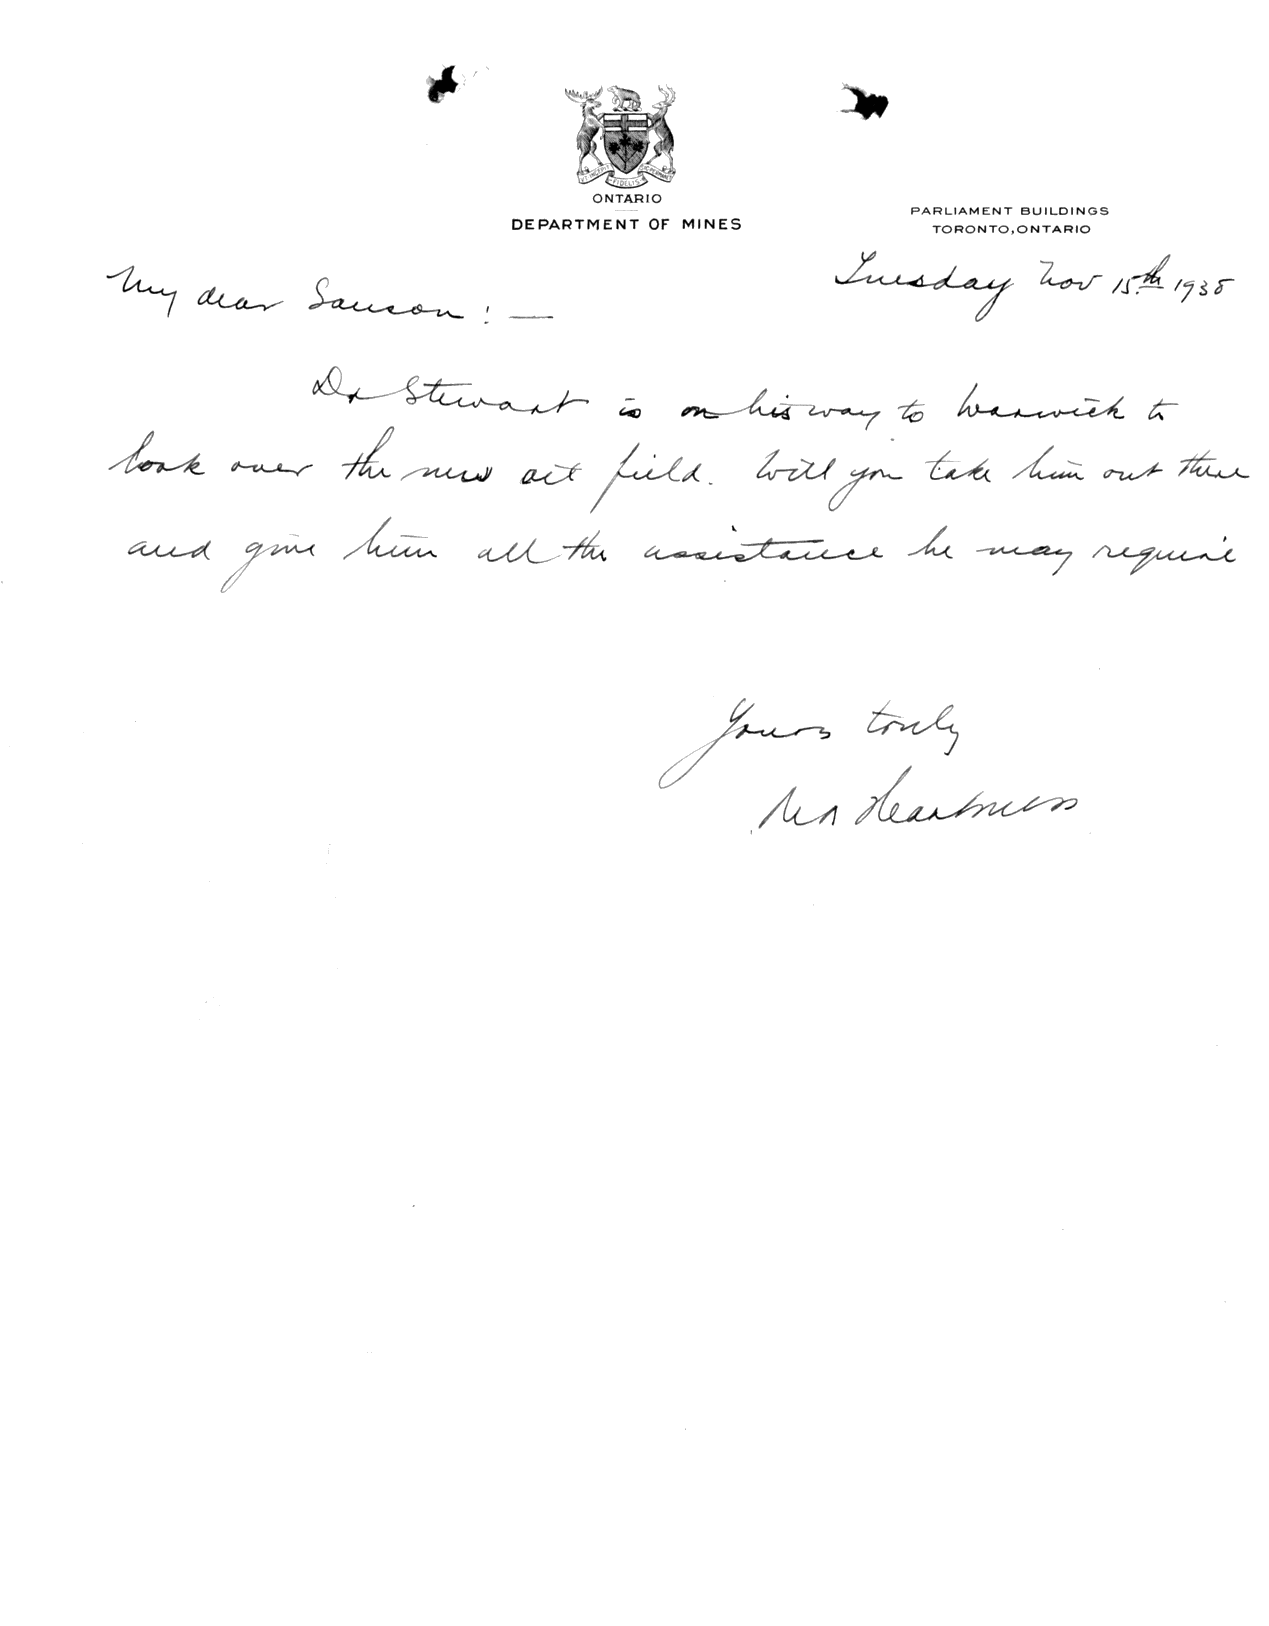 UT INCEPIT FIDELIS SIC PERMANET
ONTARIO
DEPARTMENT OF MINES
PARLIAMENT BUILDINGS
TORONTO, ONTARIO
Tuesday Nov 15th 1938
My dear Sanson : —
Dr Stewart is on his way to Warwick to
look over the new oil field. Will you take him out there
and give him all the assistance he may require
Yours truly
Harkness